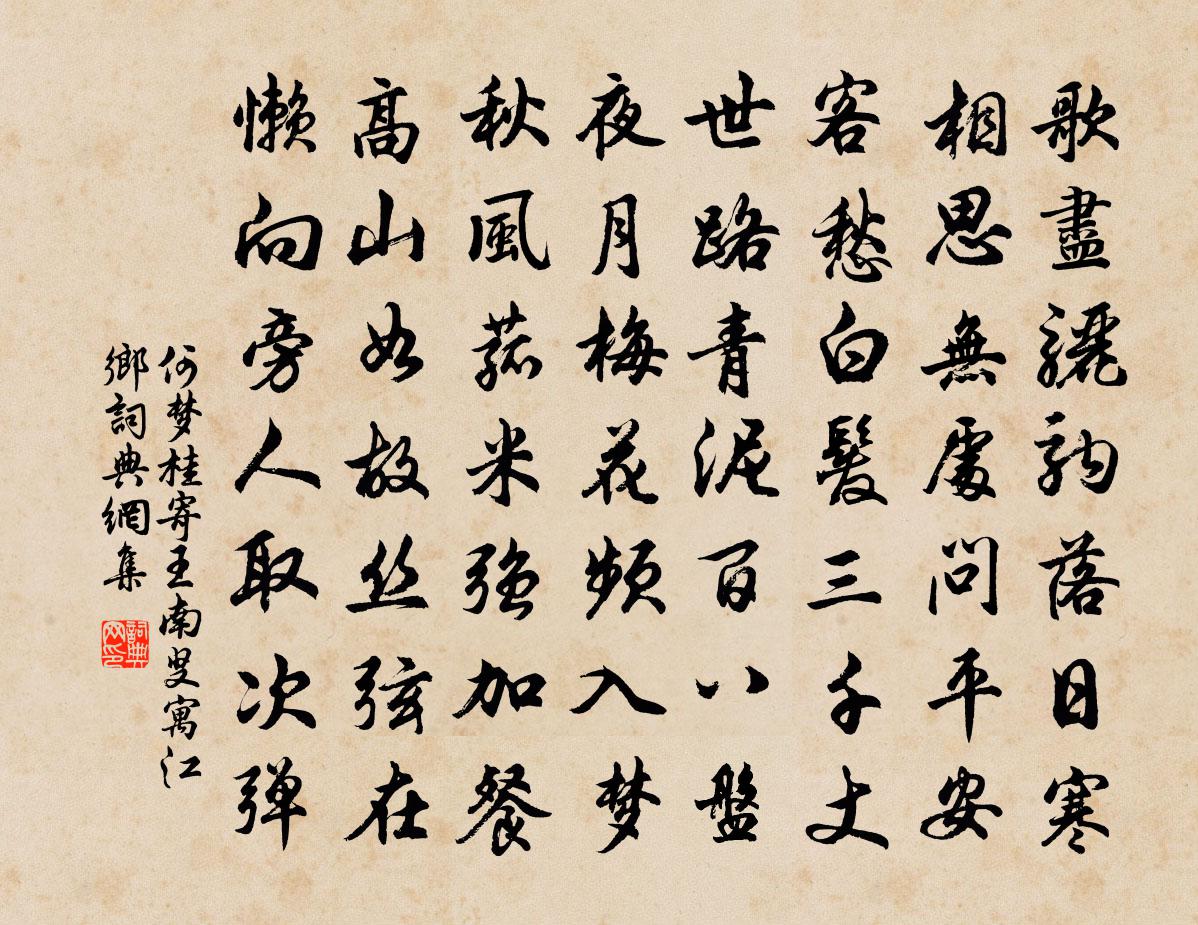 歌盡驪駒落日寒
相思無處問平安
客愁白髮三千丈
世路青泥百八盤
夜月梅花頻入夢
秋風菰米強加餐
高山如故絲弦在
懶向旁人取次弹
何梦桂寄王南叟寓江
鄉詞典網集
詞典
网印